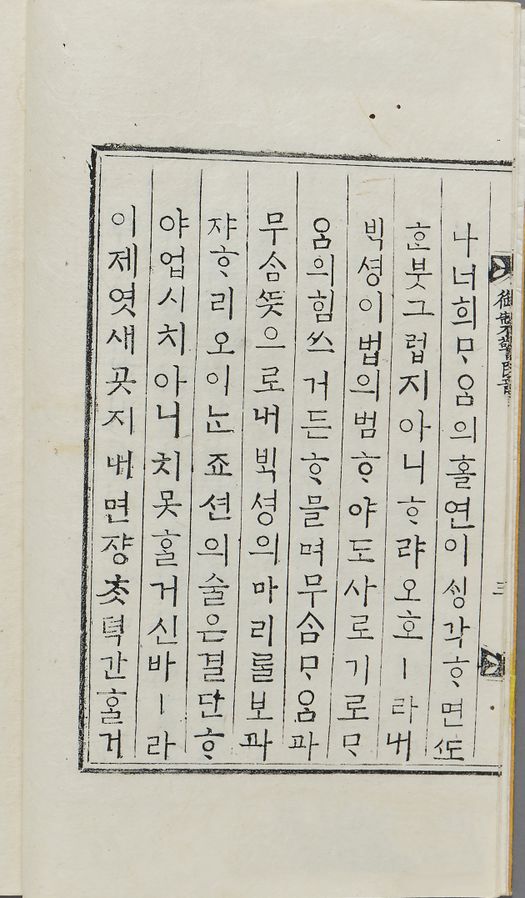 나너희ᄆᆞ음의홀연이ᄉᆡᆼ각ᄒᆞ면ᄯᅩ
ᄒᆞᆫ붓그럽지아니ᄒᆞ랴오호ㅣ라내
ᄇᆡᆨ셩이법의범ᄒᆞ야도사로기로ᄆᆞ
음의힘쓰거든ᄒᆞ믈며무슴ᄆᆞ음과
무슴ᄯᅳᆺ으로내ᄇᆡᆨ셩의마리ᄅᆞᆯ보과
쟈ᄒᆞ리오이ᄂᆞᆫ죠션의술은결단ᄒᆞ
야업시치아니치못ᄒᆞᆯ거신바ㅣ라
이제엿새곳지내면쟝ᄎᆞᆺ텩간ᄒᆞᆯ거
御製
三